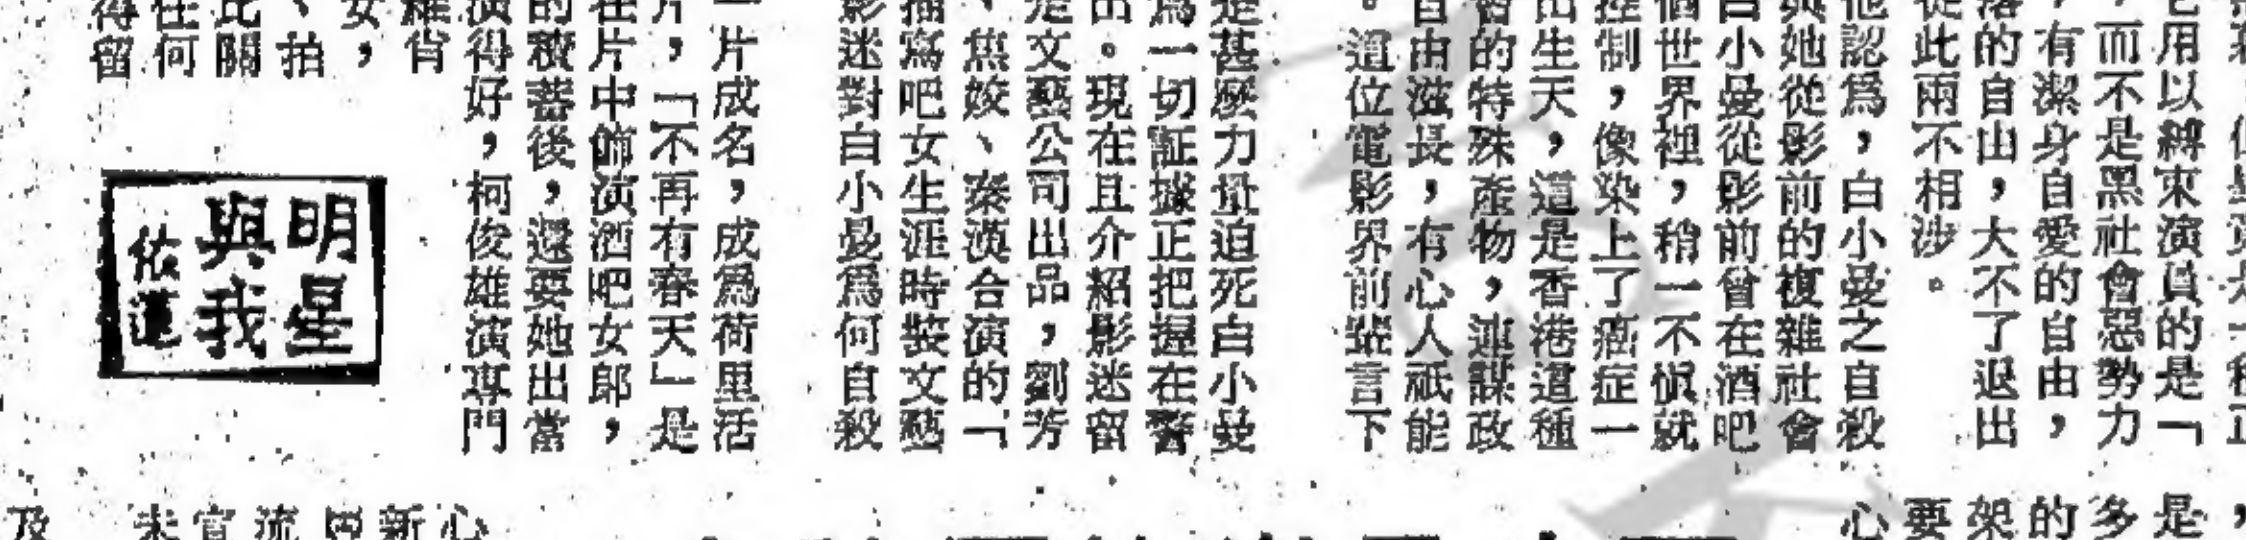 它用以縛束演員的是「
，而不是黑社會惡勢力
，有潔身自愛的自由，
落的自由，大不了退出
從此兩不相涉。
他認爲，白小曼之自殺
與她從影前的複雜社會
白小曼從影前曾在酒吧
個世界裡，稍一不慎就
控制，像染上了癌症一
出生天，這是香港這種
會的特殊產物，連謀政
自由滋長，有心人祇能
。這位電影界前輩言下
是甚麼力量迫死白小曼
爲一切証據正把握在警
出。現在且介紹影迷留
是文藝公司出品，劉芳
、焦姣、秦漢合演的「
描寫吧女生涯時裝文藝
影迷對白小曼爲何自殺
一片成名，成爲荷里活
片，「不再有春天」是
在片中飾演酒吧女郎，
的積蓄後，還要她出當
演得好，柯俊雄演專門
雜肖
女，
、拍
此關
任何
得留
明星
與我
依蓮
是
多
的
架
要
心
心
新
流
宣
未
及